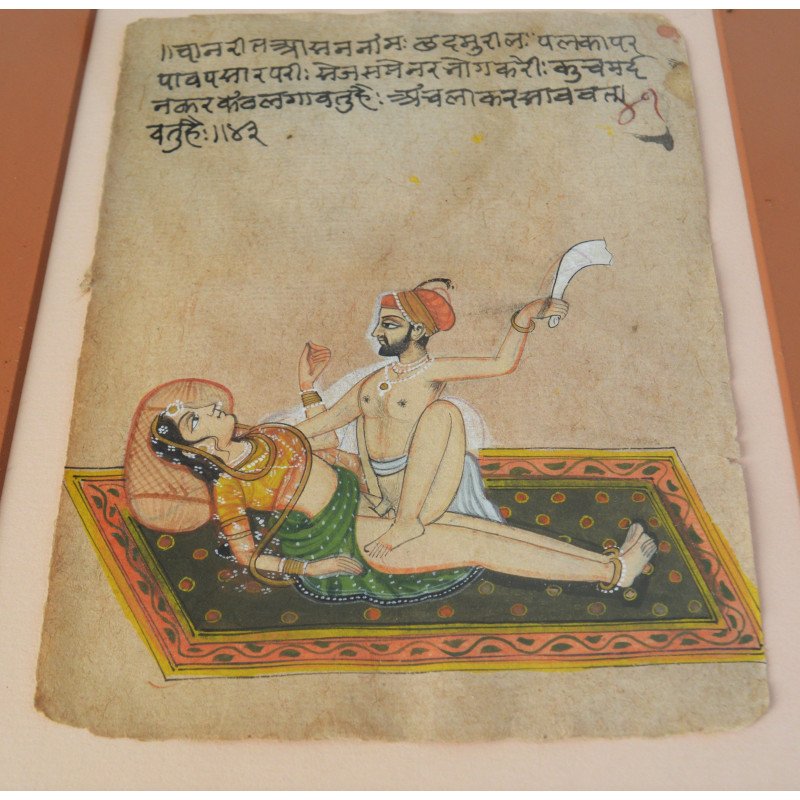 ॥वानरीतआसननांमः छदमुरीलः पलकापर
पावपसारपरीः सेजसमेनरभोगकरीः कुचमर्द
नकरकंवलगावतुहैः अंचलाकरभाववता
वतुहैः॥४३
४१